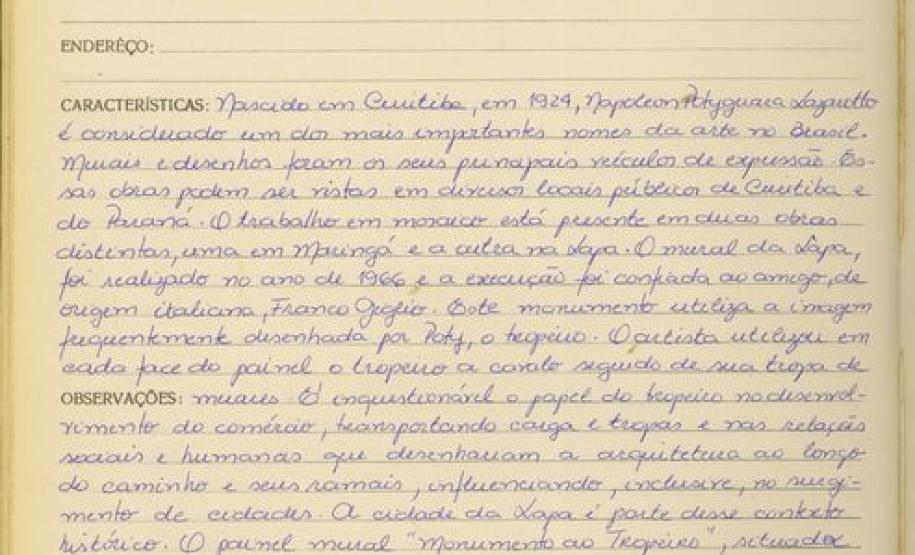 ENDERÊÇO:
CARACTERÍSTICAS: Nascido em Curitiba, em 1924, Napoleon Potyguara Lazarotto
é considerado um dos mais importantes nomes da arte no Brasil.
Murais e desenhos foram os seus principais veículos de expressão. Es-
sas obras podem ser vistas em diversos locais públicos de Curitiba e
do Paraná. O trabalho em mosaico está presente em duas obras
distintas, uma em Maringá e a outra na Lapa. O mural da Lapa,
foi realizado no ano de 1966 e a execução foi confiada ao amigo, de
origem italiana, Franco Giglio. Este monumento utiliza a imagem
frequentemente desenhada por Poty, o tropeiro. O artista utilizou em
cada face do painel o tropeiro a cavalo seguido de sua tropa de
OBSERVAÇÕES: muares. É inquestionável o papel do tropeiro no desenvol-
vimento do comércio, transportando carga e tropas e nas relações
sociais e humanas que desenhavam a arquitetura ao longo
do caminho e seus ramais, influenciando, inclusive, no surgi-
mento de cidades. A cidade da Lapa é parte desse contexto
histórico. O painel mural "Monumento ao Tropeiro", situado